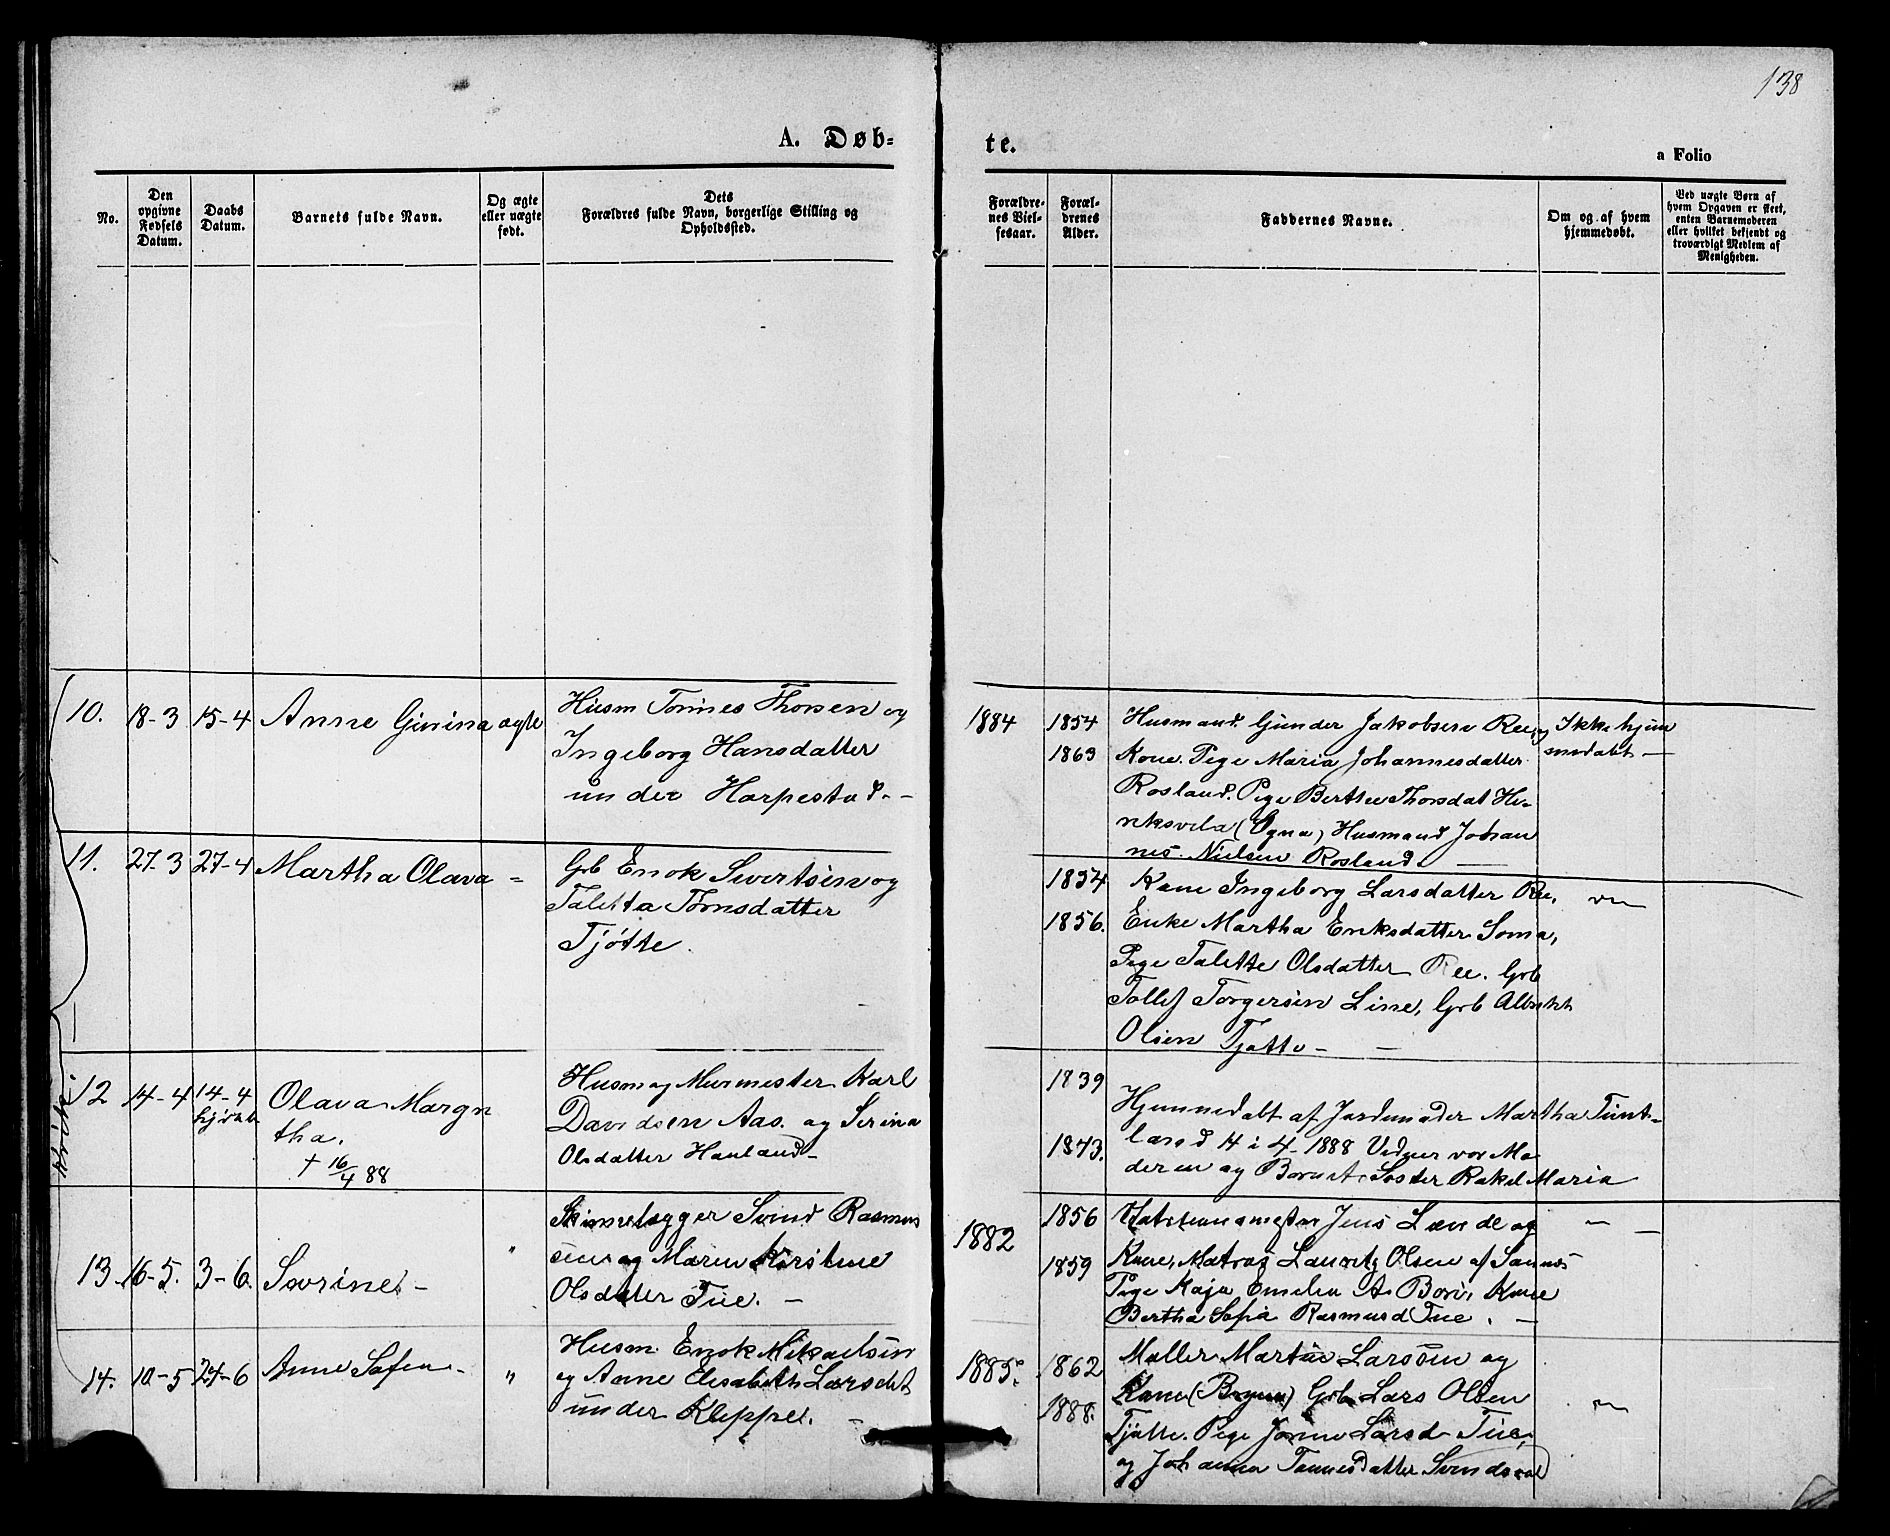 138
A. Døb-
te.
a Folio
No.
Den opgivne Fødsels Datum.
Daabs Datum.
Barnets fulde Navn.
Og ægte eller uægte født.
Dets
Forældres fulde Navn, borgerlige Stilling og
Opholdssted.
Forældre-
nes Viel-
sesaar.
Foræl-
drenes
Alder.
Faddernes Navne.
Om og af hvem
hjemmedøbt.
Ved uægte Børn af
hvem Opgaven er skeet,
enten Barnemoderen
eller hvilket bekjendt og
troværdigt Medlem af
Menigheden.
10. 18-3 15-4 Anne Gurina ægte
Husm Tønnes Thorsen og
Ingeborg Hansdatter
under Harpestad.
1884
1854
1863
Husmand Gunder Jakobsen Ree, og
Kone. Pige Maria Johannesdatter
Rosland. Pige Berthe Thorsdat
(Ogna) Husmand Johan
nes Nielsen Rosland.
Ikke hjem
medøbt
11. 27-3 27-4 Martha Olava =
Grb Enok Sivertsen og
Taletta Tørnsdatter
Tjøtte.
1854
1856.
Kone Ingeborg Larsdatter Ree,
Enke Martha Eriksdatter Soma,
Pige Talette Olsdatter Ree. Grb
Tollef Torgersen Line, Grb Albrikt
Olsen Tjøtte
12 14-4 14-4
Olava Margre
tha.
† 16/4 88
Husm og Murmester Karl
Davidsen Aas. og Serina
Olsdatter Hauland
1839
1843.
Hjemmedøbt af Jordemoder Martha Tunt-
land 14-4-1888 Vidner var Mo
deren og Barnets Søster Rakel Maria
13. 16-5. 3-6. Sørine "
Skindlægger Svend Rasmus
sen og Maren Kirstine
Olsdatter Tue.
1882
1856
1859
Jens Lende og
Kone, Matros Lauritz Olsen af Sannes
Pige Kaja Emelia A. Bore, Kone
Bertha Sofia Rasmusd Tue.
14. 10-5 24-6 Anne Sofie "
Husm. Enok Mikaelsen
og Anne Elisabeth Larsdat
under Kleppe.
1885.
1862
1888.
Møller Martin Larssen og
Kone (Bryne) Grb Lars Olsen
Tjøtte. Pige Jonne Larsd Tue,
og Johanna Tønnesdatter